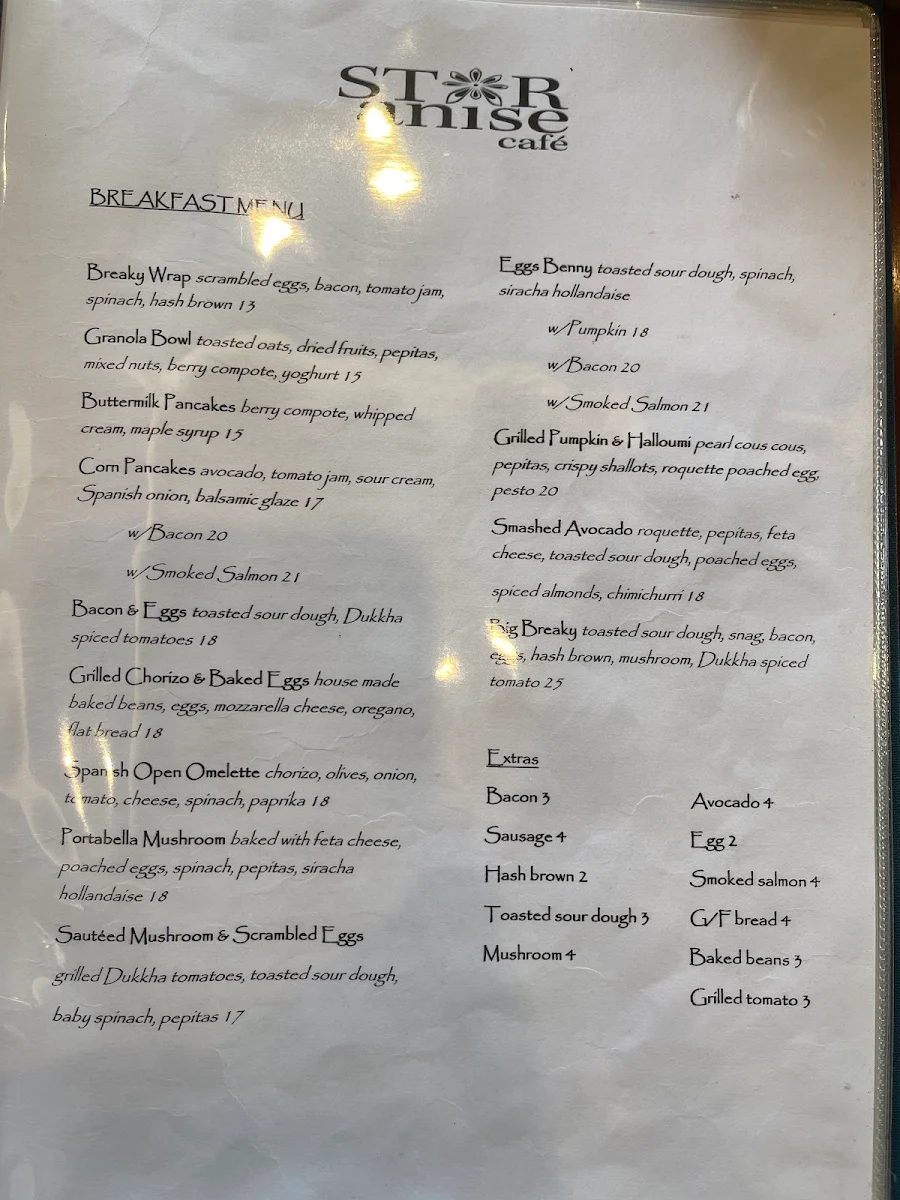 STAR
anise
café
BREAKFAST MENU
Breaky Wrap scrambled eggs, bacon, tomato jam,
spinach, hash brown 13
Granola Bowl toasted oats, dried fruits, pepitas,
mixed nuts, berry compote, yoghurt 15
Buttermilk Pancakes berry compote, whipped
cream, maple syrup 15
Corn Pancakes avocado, tomato jam, sour cream,
Spanish onion, balsamic glaze 17
w/Bacon 20
w/Smoked Salmon 21
Bacon & Eggs toasted sour dough, Dukkha
spiced tomatoes 18
Grilled Chorizo & Baked Eggs house made
baked beans, eggs, mozzarella cheese, oregano,
flat bread 18
Spanish Open Omelette chorizo, olives, onion,
tomato, cheese, spinach, paprika 18
Portabella Mushroom baked with feta cheese,
poached eggs, spinach, pepitas, siracha
hollandaise 18
Sautéed Mushroom & Scrambled Eggs
grilled Dukkha tomatoes, toasted sour dough,
baby spinach, pepitas 17
Eggs Benny toasted sour dough, spinach,
siracha hollandaise
w/Pumpkin 18
w/Bacon 20
w/Smoked Salmon 21
Grilled Pumpkin & Halloumi pearl cous cous,
pepitas, crispy shallots, roquette poached egg,
pesto 20
Smashed Avocado roquette, pepitas, feta
cheese, toasted sour dough, poached eggs,
spiced almonds, chimichurri 18
Big Breaky toasted sour dough, snag, bacon,
eggs, hash brown, mushroom, Dukkha spiced
tomato 25
Extras
Bacon 3
Sausage 4
Hash brown 2
Toasted sour dough 3
Mushroom 4
Avocado 4
Egg 2
Smoked salmon 4
G/F bread 4
Baked beans 3
Grilled tomato 3